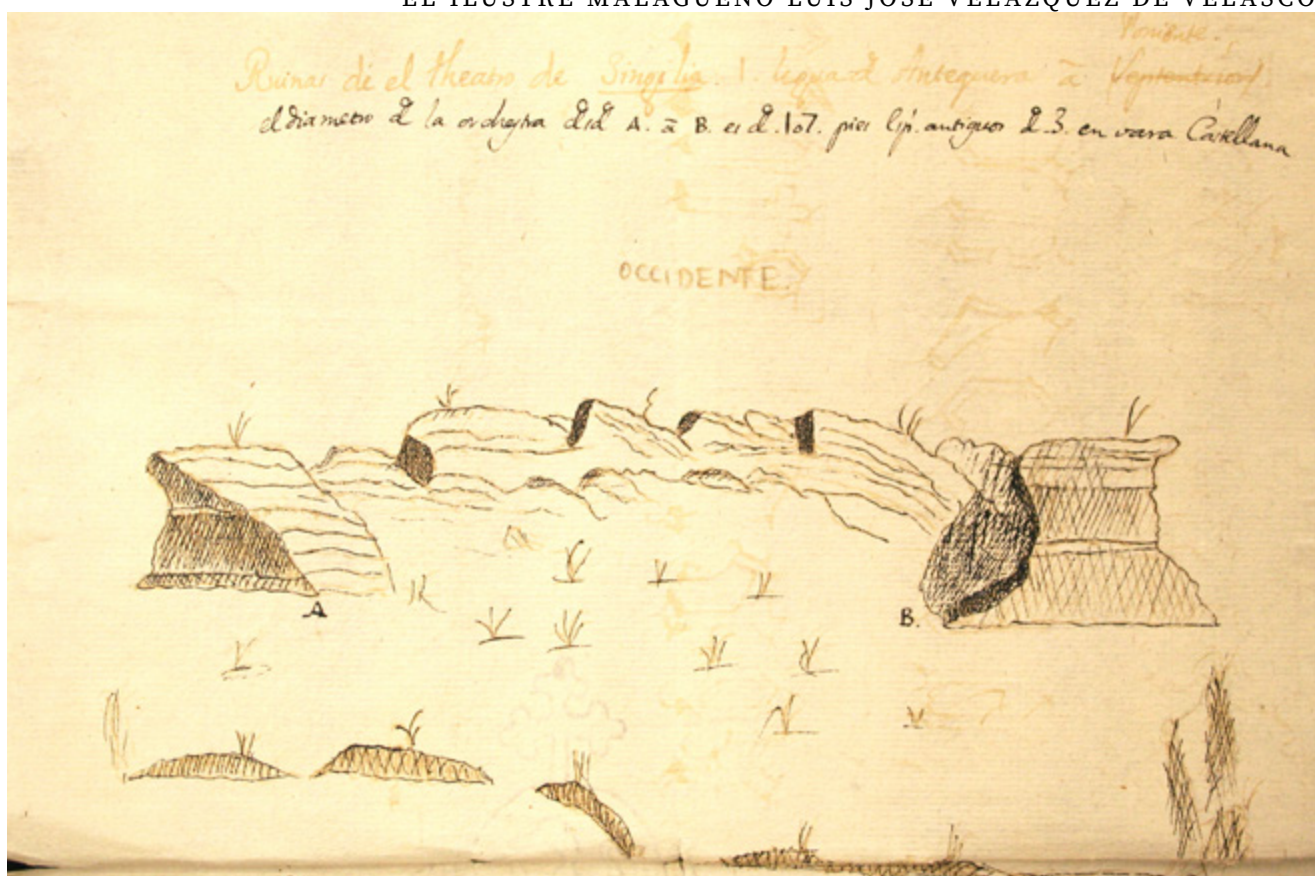 EL ILUSTRE MALAGUEÑO LUIS JOSÉ VELÁZQUEZ DE VELASCO
Poniente.
Ruinas de el theatro de Singilia. 1. legua d Antequera à Septentrion
el diametro d la orchestra dsd A. à B. es d. 107. pies Esp. antiguos d 3. en vara Castellana
OCCIDENTE.
A
B.